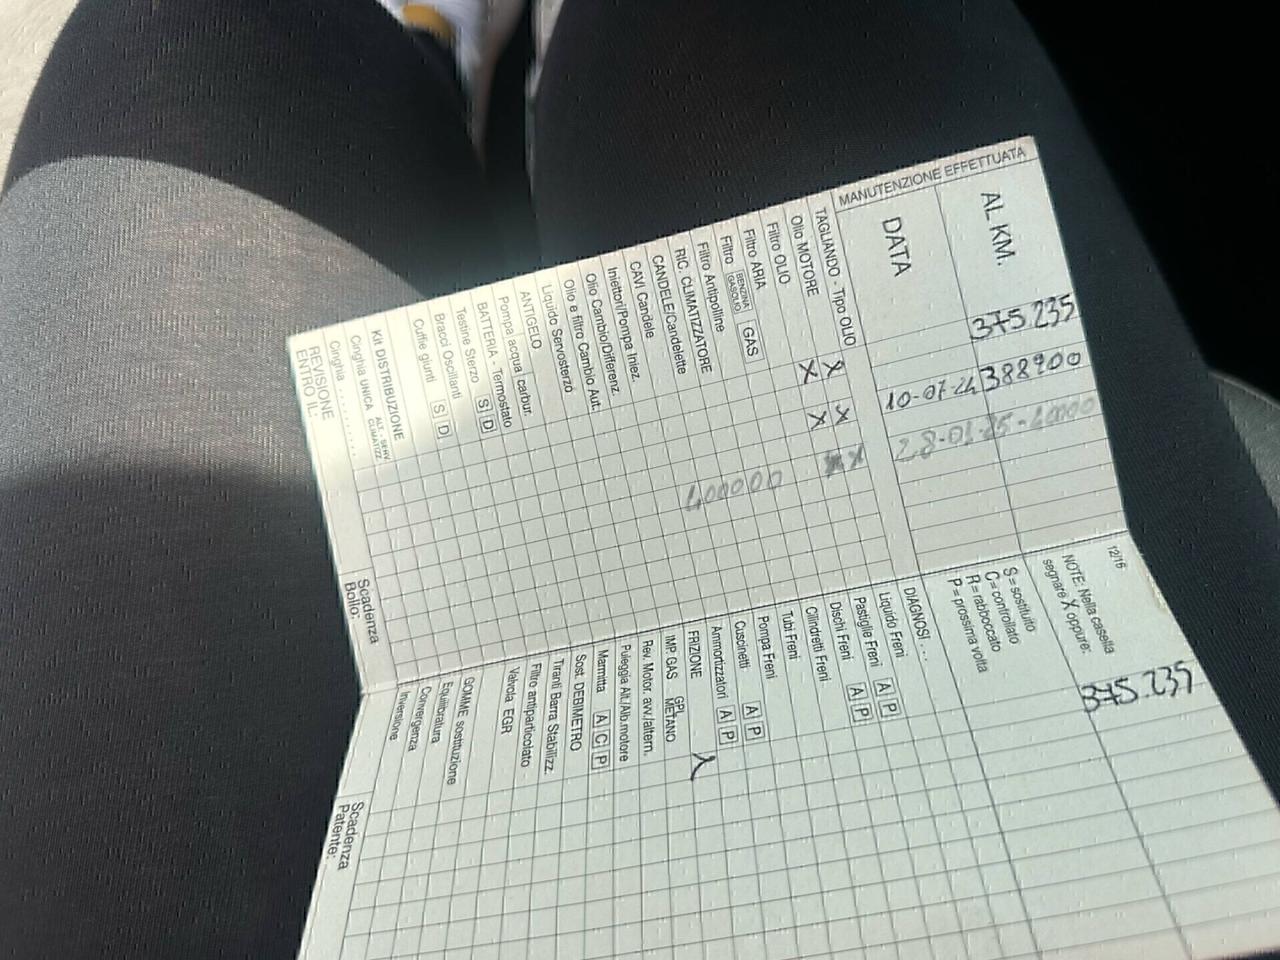 MANUTENZIONE EFFETTUATA
AL KM. 375.235 388200
DATA 10-07-24
TAGLIANDO - Tipo OLIO X X
Olio MOTORE X X
Filtro OLIO
Filtro ARIA
Filtro BENZINA GASOLIO GAS
Filtro Antipolline
RIC. CLIMATIZZATORE
CANDELE/Candelette
CAVI Candele
Iniettori/Pompa Iniez.
Olio Cambio/Differenz.
Olio e filtro Cambio Aut.
Liquido Servosterzo
ANTIGELO
Pompa acqua carbur.
BATTERIA - Termostato
Testine Sterzo S D
Bracci Oscillanti
Cuffie giunti S D
Kit DISTRIBUZIONE
Cinghia UNICA ALT. - SERV. CLIMATIZZ.
Cinghia ..........
REVISIONE
ENTRO IL:
Scadenza
Bollo:
12/16
NOTE: Nella casella
segnare X oppure:
S = sostituito
C = controllato
R = rabboccato
P = prossima volta
375.235
DIAGNOSI ....
Liquido Freni
Pastiglie Freni A P
Dischi Freni A P
Cilindretti Freni
Tubi Freni
Pompa Freni
Cuscinetti A P
Ammortizzatori A P
FRIZIONE X
IMP. GAS GPL METANO
Rev. Motor. avv./altern.
Puleggia Alt./Alb.motore
Marmitta A C P
Sost. DEBIMETRO
Tiranti Barra Stabilizz.
Filtro antiparticolato
Valvola EGR
GOMME sostituzione
Equilibratura
Convergenza
Inversione
Scadenza
Patente: